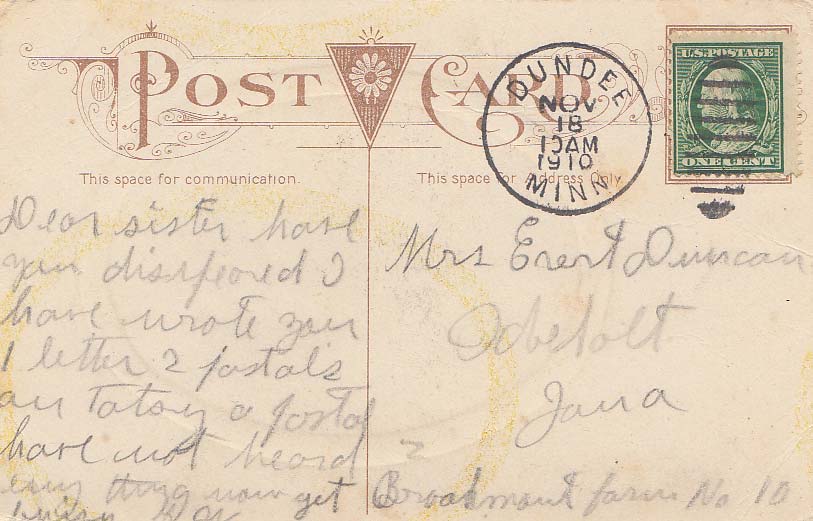 POST CARD
DUNDEE
NOV
18
10AM
1910
MINN.
U.S. POSTAGE
ONE CENT
This space for communication.
This space for Address Only.
Dear sister have
you disapeored I
have wrote you
1 letter 2 postals
a postal
have not heard
thing get
Mrs Evert Duncan
Odebolt
Iowa
Broadmount farm No 10